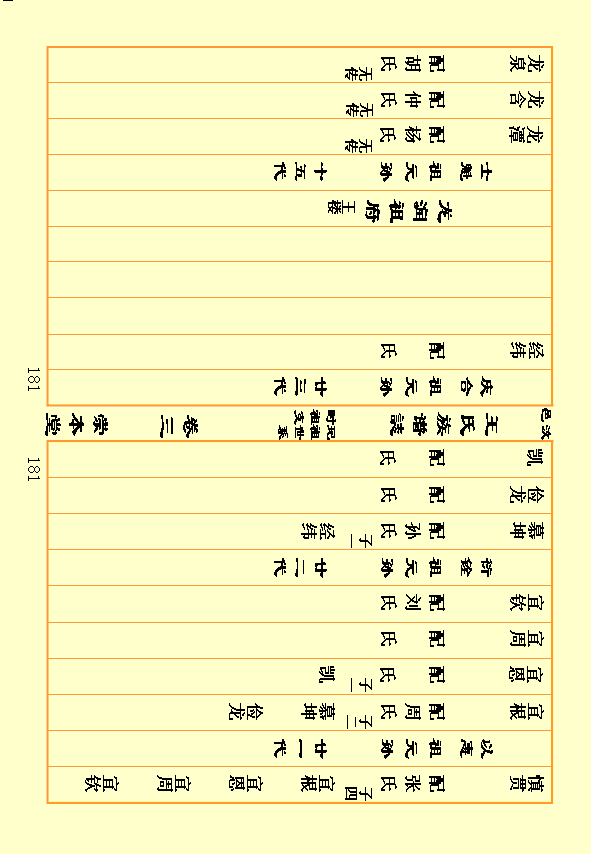 慎贯 配张氏 子四 宜根 宜恩 宜周 宜钦
以惠祖元孙 廿一代
宜根 配周氏 子二 慕坤 俭龙
宜恩 配 氏 子一 凯
宜周 配 氏
宜钦 配刘氏
衍铨祖元孙 廿二代
慕坤 配孙氏 子一 经纬
俭龙 配 氏
凯 配 氏
181
汶邑 王氏族谱誌 卷三 崇本堂
181
庆合祖元孙 廿三代
经纬 配 氏
龙润祖府 王楼
士魁祖元孙 十五代
龙潭 配杨氏 无传
龙含 配仲氏 无传
龙泉 配胡氏 无传